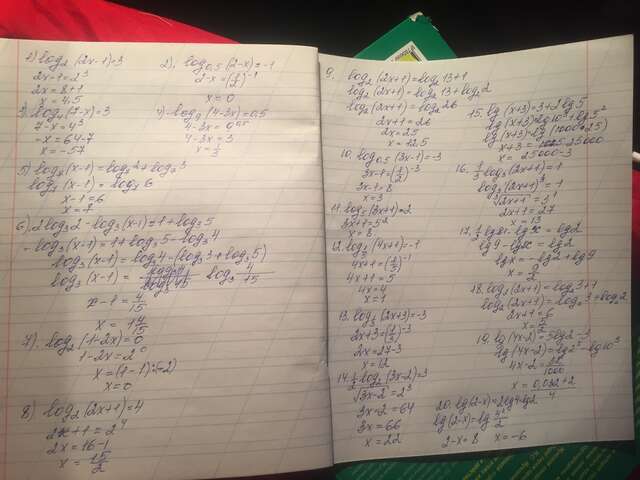 1) log₂(2x-1)=3
2x-1=2³
2x=8+1
x=4.5
2). log₀,₅(2-x)=-1
2-x=(1/2)⁻¹
x=0
(7-x)=3
7-x=4³
-x=64-7
x=-57
4. log₉(4-3x)=0,5
4-3x=9⁰,⁵
4-3x=3
x=1/3
5)
(x-1)=
x-1=6
x=7
6). 2log₃2-log₃(x-1)=1+log₃5
-log₃(x-1)=1+log₃5-log₃4
log₃(x-1)=log₃4-(log₃3+log₃5)
log₃(x-1)= log₃ 4/15
x-1=4/15
x=1 4/15
7). log₂(1-2x)=0
1-2x=2⁰
x=(1-1):(-2)
x=0
8) log₂(2x+1)=4
2x+1=2⁴
2x=16-1
x=15/2
9. log₂(2x+1)=log₂13+1
log₂(2x+1)=log₂13+log₂2
log₂(2x+1)=log₂26
2x+1=26
2x=25
x=12.5
10. log₀,₅(3x-1)=-3
3x-1=(1/2)⁻³
3x-1=8
x=3
11. log₅(3x+1)=2
3x+1=5²
x=8
12. (4x+1)=-1
4x+1=(1/5)⁻¹
4x+1=5
4x=4
x=1
13. (2x+3)=-3
2x+3=(1/3)⁻³
2x=27-3
x=12
14. 1/2 log₂(3x-2)=3
√3x-2=2³
3x-2=64
3x=66
x=22
15. lg(x+3)=3+2lg5
lg(x+3)=lg10³+lg5²
lg(x+3)=lg(1000·25)
x+3=25000
x=25000-3
16. 1/3 log₃(2x+1)=1
=1
=3¹
2x+1=27
x=13
17. 1/2 lg81-lgx=lg2
lg9-lgx=lg2
lgx=-lg2+lg9
x=9/2
18. log₂(2x+1)=log₂3+1
log₂(2x+1)=log₂3+log₂2
2x+1=6
x=5/2
19. lg(4x-2)=5lg2-3
lg(4x-2)=lg2⁵-lg10³
4x-2=32/1000
x=0,032+2/4
20. lg(2-x)=2lg4-lg2
lg(2-x)=lg 4²/2
2-x=8 x=-6